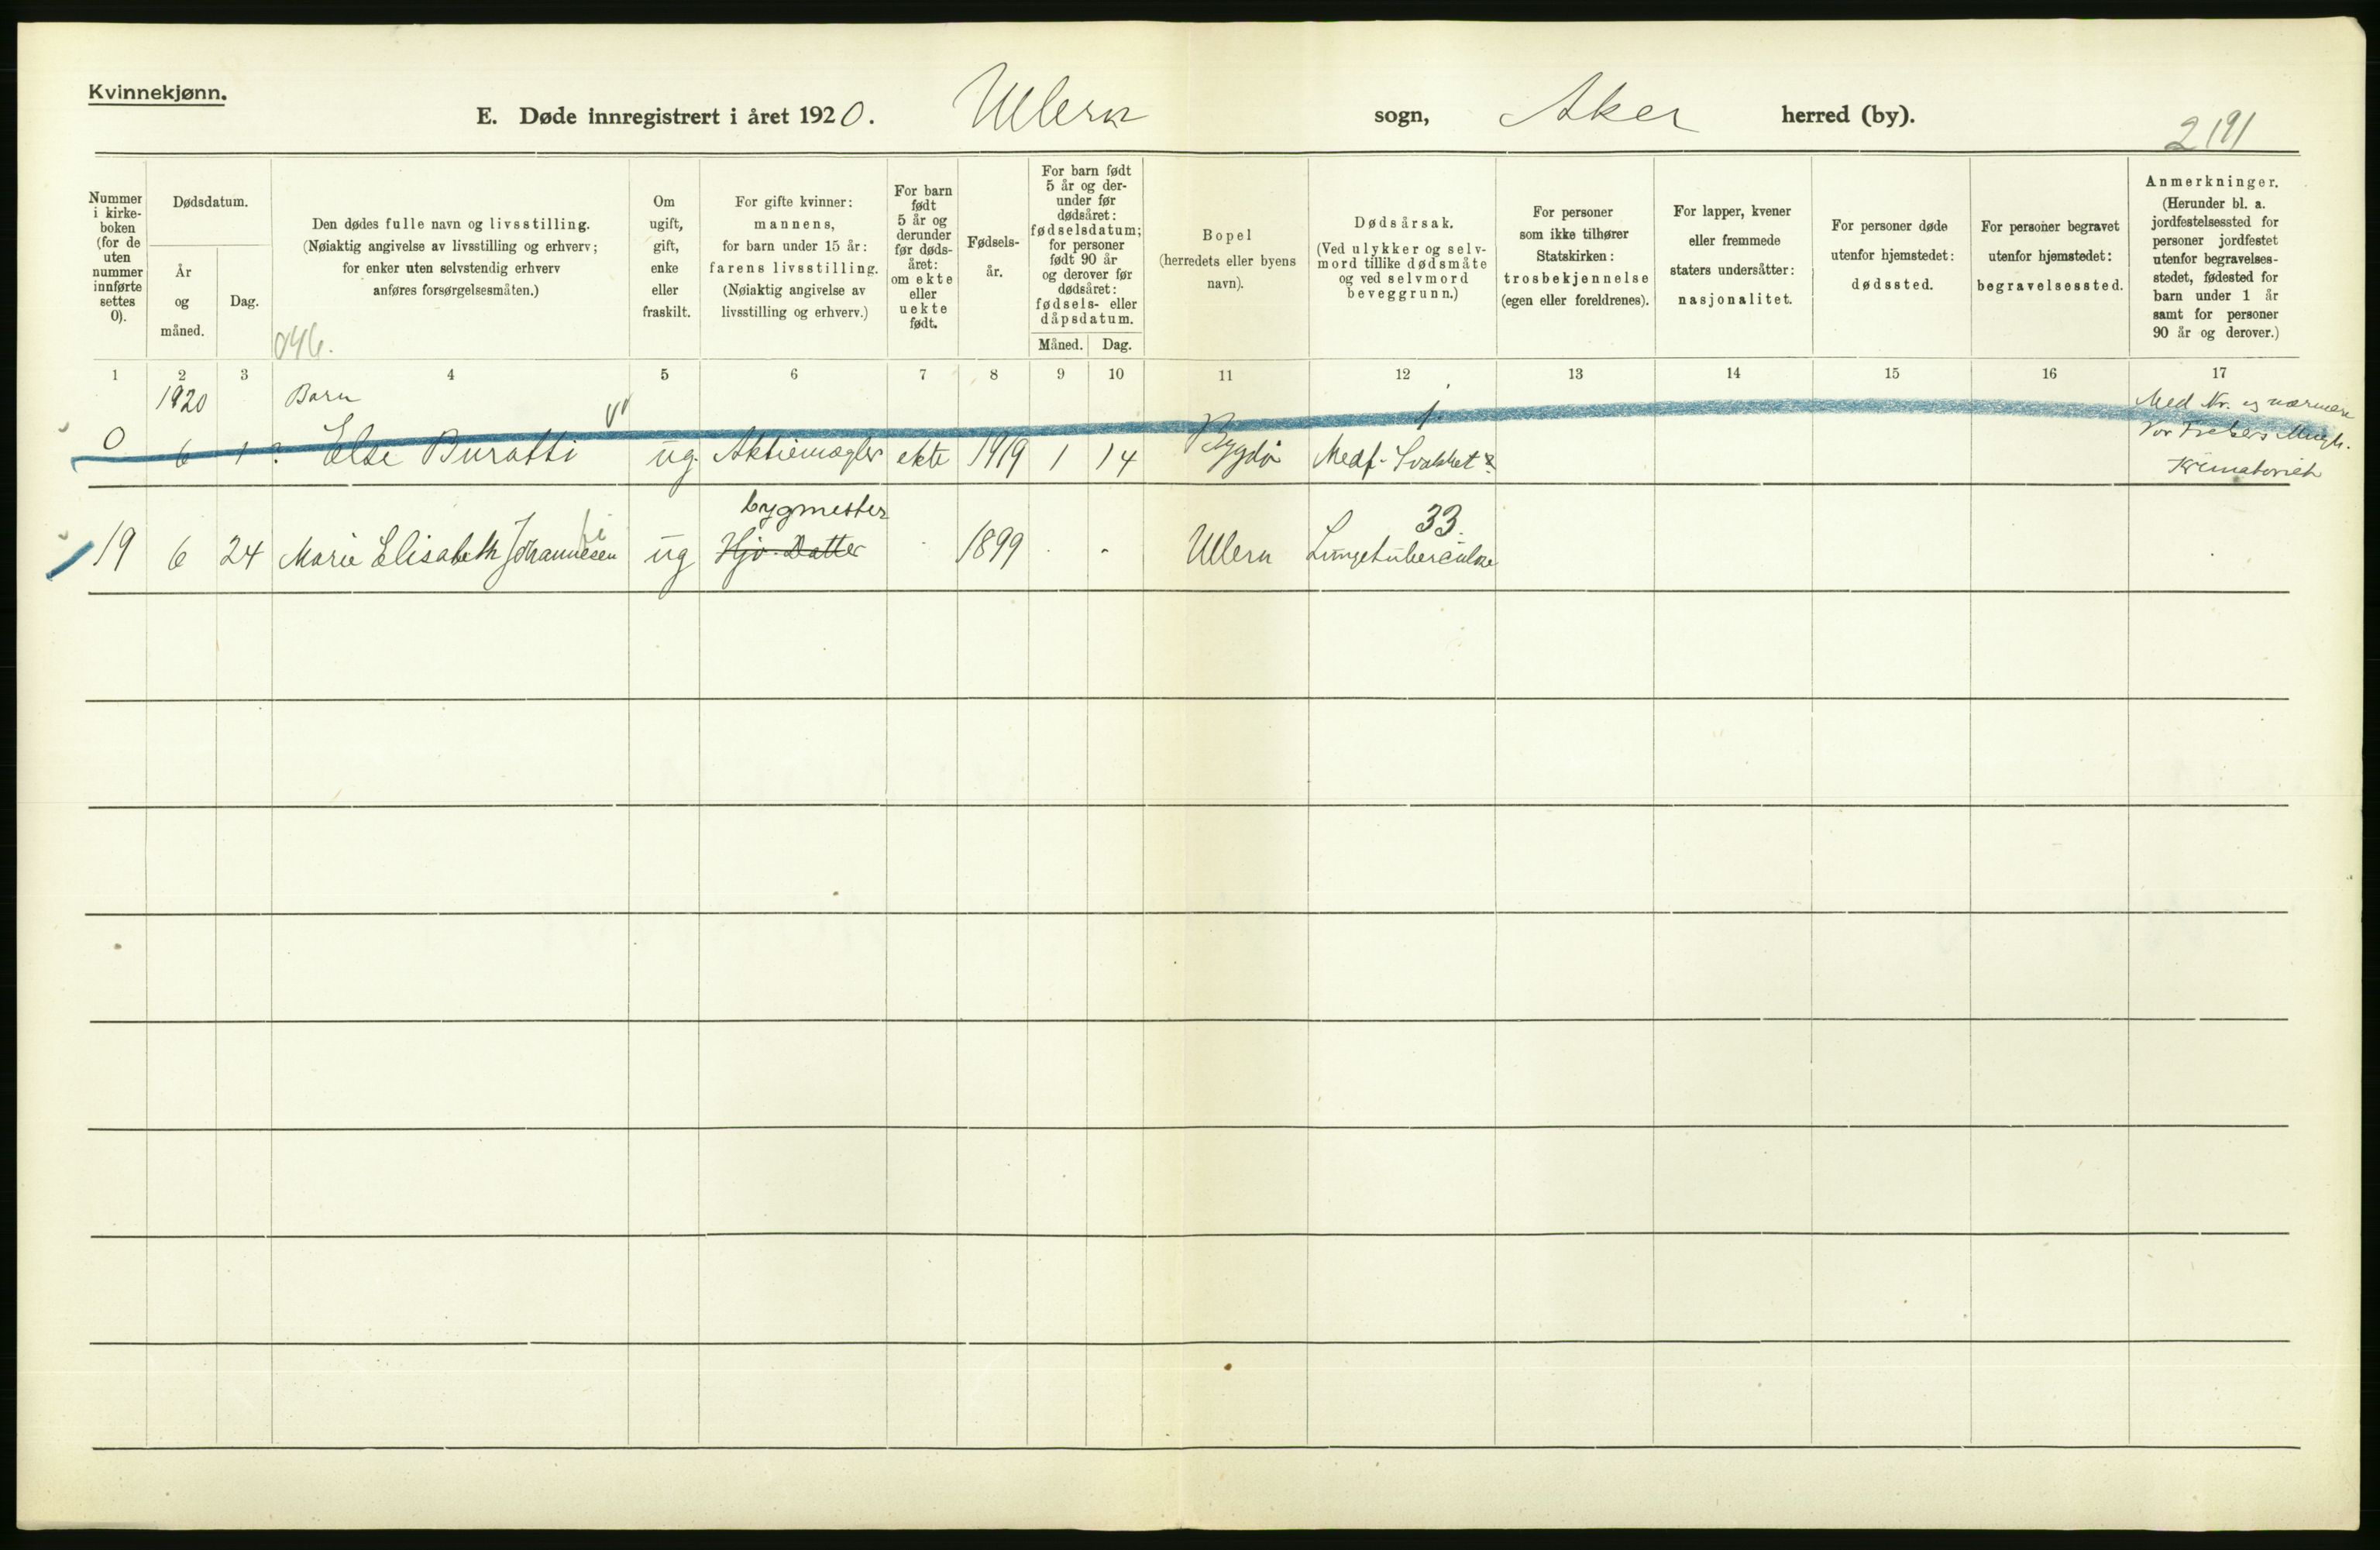 Kvinnekjønn.
E. Døde innregistrert i året 1920. Ullern sogn, Aker herred (by).
2191
Nummer
i kirke-
boken
(for de
uten
nummer
innførte
settes
0).
Dødsdatum.
År
og
måned.
Dag.
Den dødes fulle navn og livsstilling.
(Nøiaktig angivelse av livsstilling og erhverv;
for enker uten selvstendig erhverv
anføres forsørgelsesmåten.)
Om
ugift,
gift,
enke
eller
fraskilt.
For gifte kvinner:
mannens,
for barn under 15 år:
farens livsstilling.
(Nøiaktig angivelse av
livsstilling og erhverv.)
For barn
født
5 år og
derunder
før døds-
året:
om ekte
eller
uekte
født.
Fødsels-
år.
For barn født
5 år og der-
under før
dødsåret:
fødselsdatum;
for personer
født 90 år
og derover før
dødsåret:
fødsels- eller
dåpsdatum.
Måned. Dag.
Bopel
(herredets eller byens
navn).
Dødsårsak.
(Ved ulykker og selv-
mord tillike dødsmåte
og ved selvmord
beveggrunn.)
For personer
som ikke tilhører
Statskirken:
trosbekjennelse
(egen eller foreldrenes).
For lapper, kvener
eller fremmede
staters undersåtter:
nasjonalitet.
For personer døde
utenfor hjemstedet:
dødssted.
For personer begravet
utenfor hjemstedet:
begravelsessted.
Anmerkninger.
(Herunder bl. a.
jordfestelsessted for
personer jordfestet
utenfor begravelses-
stedet, fødested for
barn under 1 år
samt for personer
90 år og derover.)
1 2 3 4 5 6 7 8 9 10 11 12 13 14 15 16 17
1920 Barn 1. Med Nr. og nærmere
0 6 1? Else Buratti ug. Aktiemægler ekte 1919 1 14 Bygdø Medf. Svakhet? Vor Frelsers
Krematoriet
bygmester 33.
19 6 24 Marie Elisabeth Johannesen ug Hjv. Datter - 1899 - - Ullern Lungetuberculose